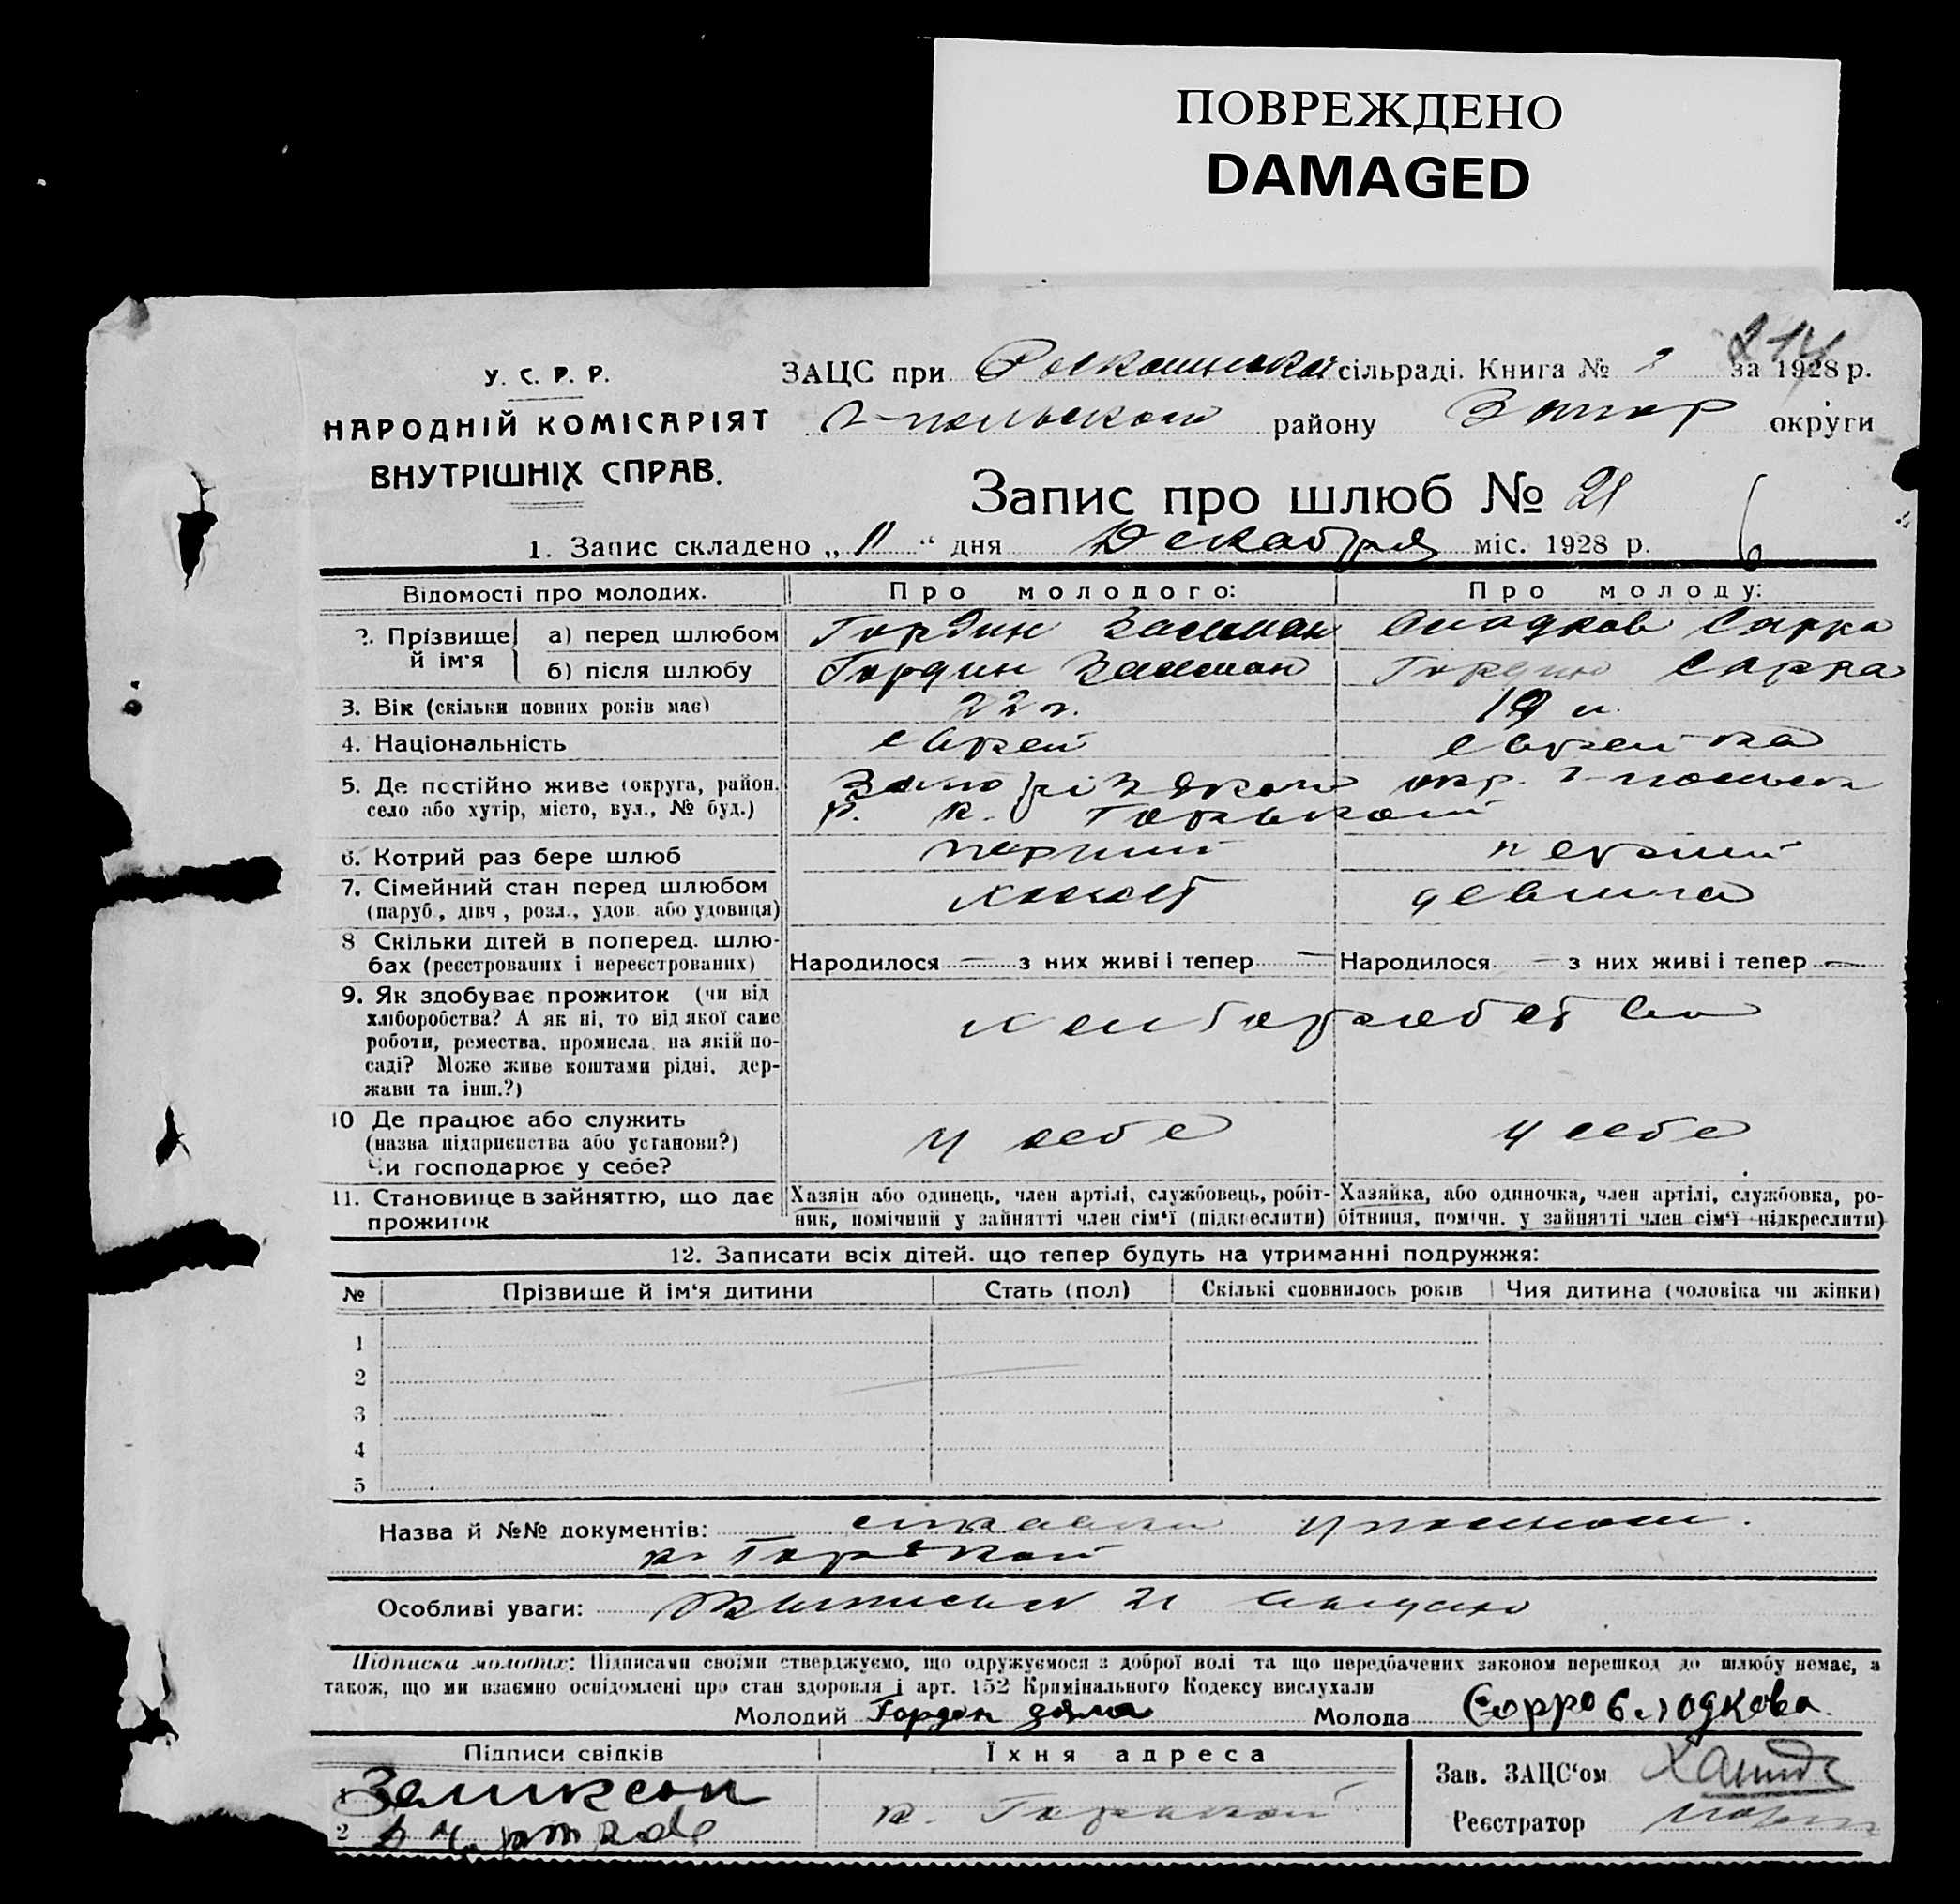 ПОВРЕЖДЕНО
DAMAGED
214
У. С. Р. Р.
НАРОДНІЙ КОМІСАРІЯТ
ВНУТРІШНІХ СПРАВ.
ЗАЦС при сільраді. Книга № за 1928 р.
району Запор округи
Запис про шлюб № 21
6
1. Запис складено „ 11 “ дня Декабря міс. 1928 р.
Відомості про молодих. Про молодого: Про молоду:
2. Прізвище й ім'я а) перед шлюбом Гордин Залман Сладков Сарра
б) після шлюбу Гордин Залман Гордин Сарра
3. Вік (скільки повних років має) 22 г. 19 л.
4. Національність еврей еврейка
5. Де постійно живе (округа, район, Запорізжкой окр.
село або хутір, місто, вул., № буд.) р. к. Горькой
6. Котрий раз бере шлюб перший перший
7. Сімейний стан перед шлюбом холост девица
(паруб., дівч., розл., удов. або удовиця)
8 Скільки дітей в поперед. шлю-
бах (реєстрованих і нереєстрованих) Народилося — з них живі і тепер — Народилося — з них живі і тепер —
9. Як здобуває прожиток (чи від
хліборобства? А як ні, то від якої саме
роботи, ремества, промисла, на якій по-
саді? Може живе коштами рідні, дер-
жави та інш.?)
10 Де працює або служить
(назва підприємства або установи?) у себе у себе
Чи господарює у себе?
11. Становище в зайняттю, що дає Хазяін або одинець, член артілі, службовець, робіт- Хазяйка, або одиночка, член артілі, службовка, ро-
прожиток ник, помічний у зайнятті член сім‘ї (підкреслити) бітниця, помічн. у зайнятті член сім‘ї підкреслити)
12. Записати всіх дітей, що тепер будуть на утриманні подружжя:
№ Прізвище й ім‘я дитини Стать (пол) Скількі сповнилось років Чия дитина (чоловіка чи жінки)
1
2
3
4
5
Назва й №№ документів: справки
к. Горькой
Особливі уваги: 21
Підписка молодих: Підписами своїми стверджуємо, що одружуємося з доброї волі та що передбачених законом перешкод до шлюбу немає, а
також, що ми взаємно освідомлені про стан здоровля і арт. 152 Кримінального Кодексу вислухали
Молодий Гордон Зяма Молода Сорро Сладкова
Підписи свідків Їхня адреса Зав. ЗАЦС‘ом
1
2 к. Горькой Реєстратор